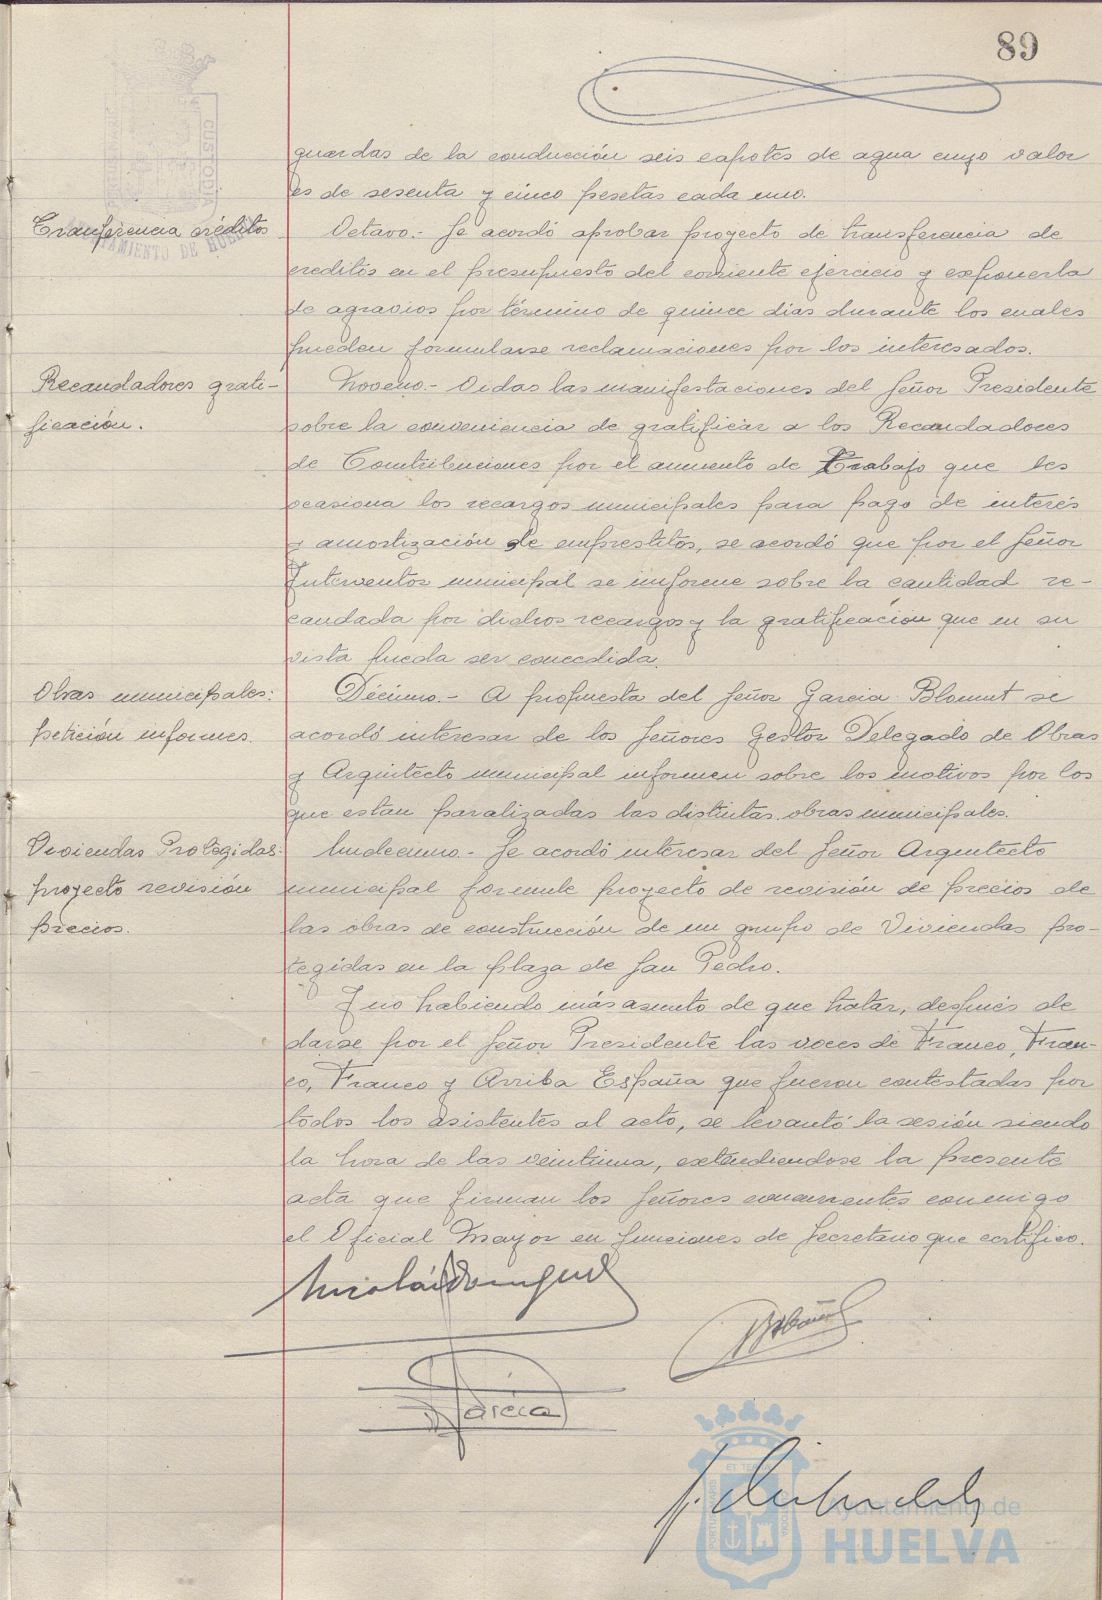 89
guardas de la conducción seis capotes de agua cuyo valor
es de sesenta y cinco pesetas cada uno.
Tranferencia créditos
Octavo.- Se acordó aprobar proyecto de transferencia de
creditos en el presupuesto del corriente ejercicio y exponerla
de agravios por término de quince dias durante los cuales
pueden formularse reclamaciones por los interesados.
Recaudadores grati-
ficación.
Noveno.- Oidas las manifestaciones del Señor Presidente
sobre la conveniencia de gratificar a los Recaudadores
de Contribuciones por el aumento de Trabajo que les
ocasiona los recargos municipales para pago de interés
y amortización de emprestitos, se acordó que por el Señor
Interventor municipal se informe sobre la cantidad re-
caudada por dichos recargos y la gratificación que en su
vista pueda ser concedida.
Obras municipales:
petición informes.
Décimo.- A propuesta del Señor Garcia Blomut se
acordó interesar de los Señores Gestor Delegado de Obras
y Arquitecto municipal informen sobre los motivos por los
que estan paralizadas las distintas obras municipales.
Viviendas Protegidas:
proyecto revisión
precios.
Undecimo.- Se acordó interesar del Señor Arquitecto
municipal formule proyecto de revisión de precios de
las obras de construcción de un grupo de Viviendas pro-
tegidas en la plaza de San Pedro.
Y no habiendo más asunto de que tratar, después de
darse por el Señor Presidente las voces de Franco, Fran-
co, Franco y Arriba España que fueron contestadas por
todos los asistentes al acto, se levantó la sesión siendo
la hora de las veintiuna, extendiendose la presente
acta que firman los Señores concurrentes conmigo
el Oficial Mayor en funciones de Secretario que certifico.
García
Ayuntamiento de
HUELVA